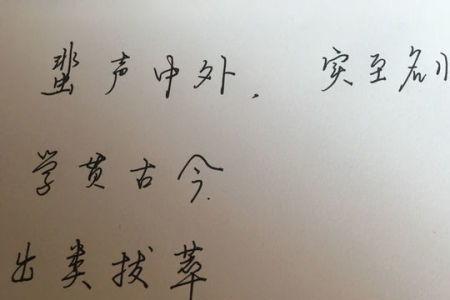 蜚声中外, 实至名
学贯古今
出类拔萃